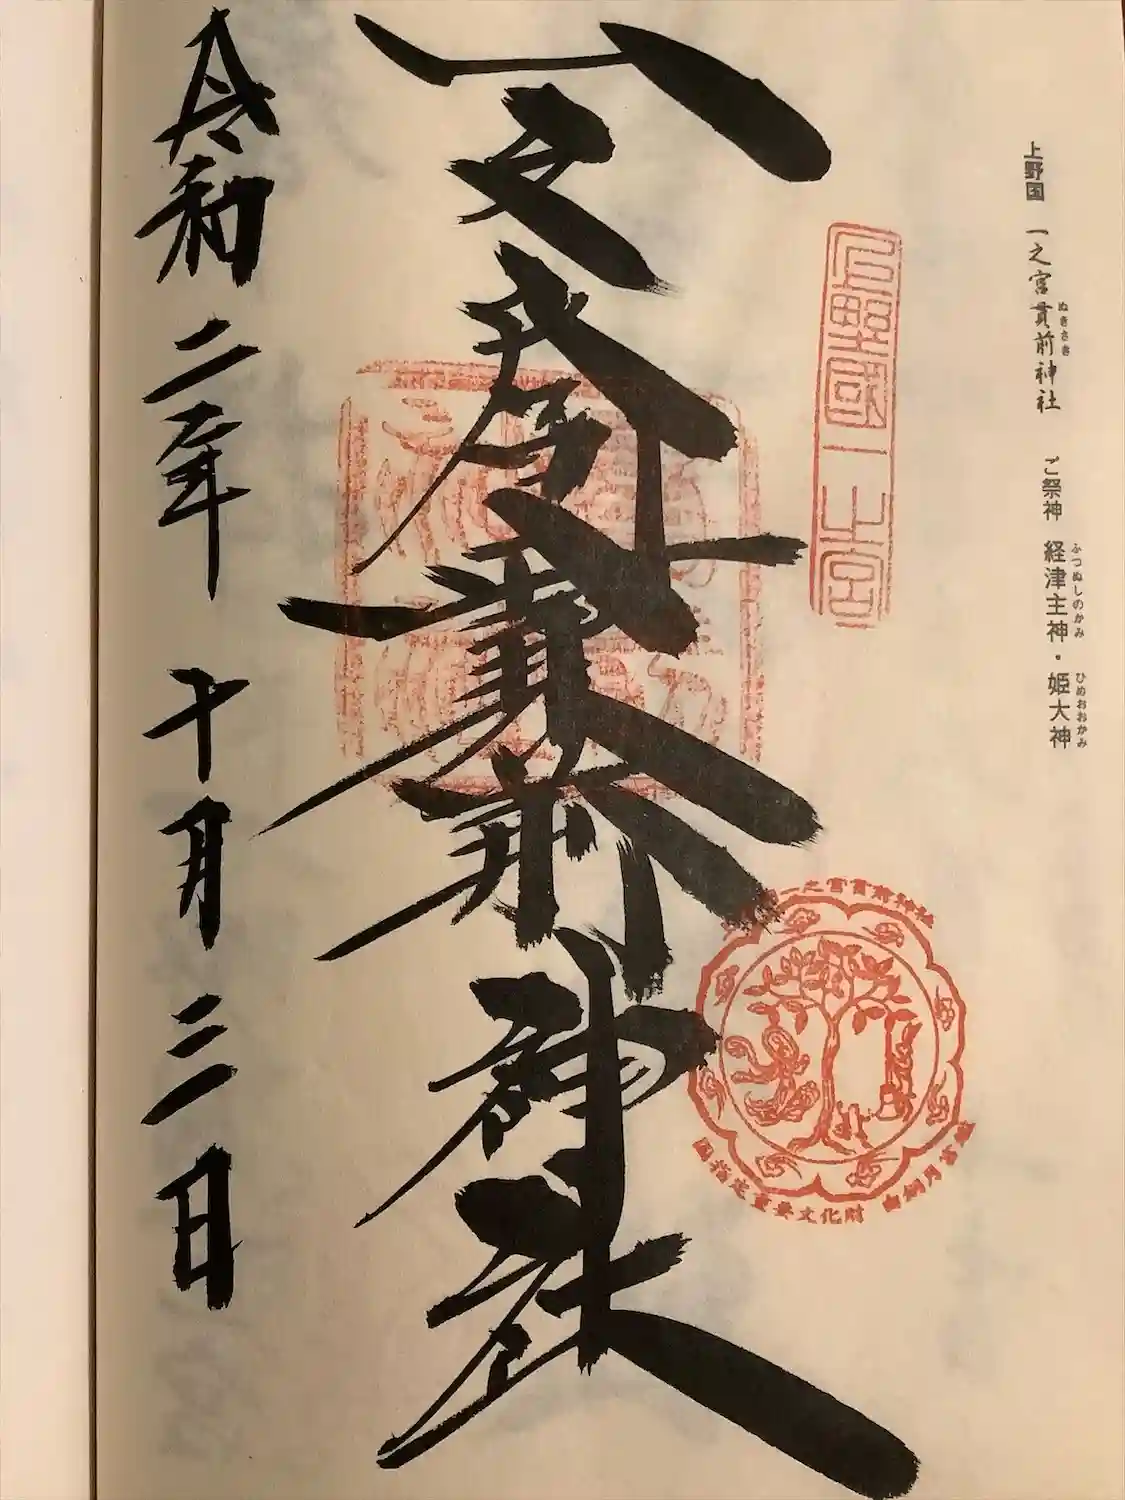 上野国 一之宮貫前神社 ご祭神 経津主神・姫大神
ぬきさき
ふつぬしのかみ ひめおおかみ
上野國一之宮
一之宮貫前神社
一之宮貫前神社
国指定重要文化財 白銅月宮鑑
令和二年 十月三日